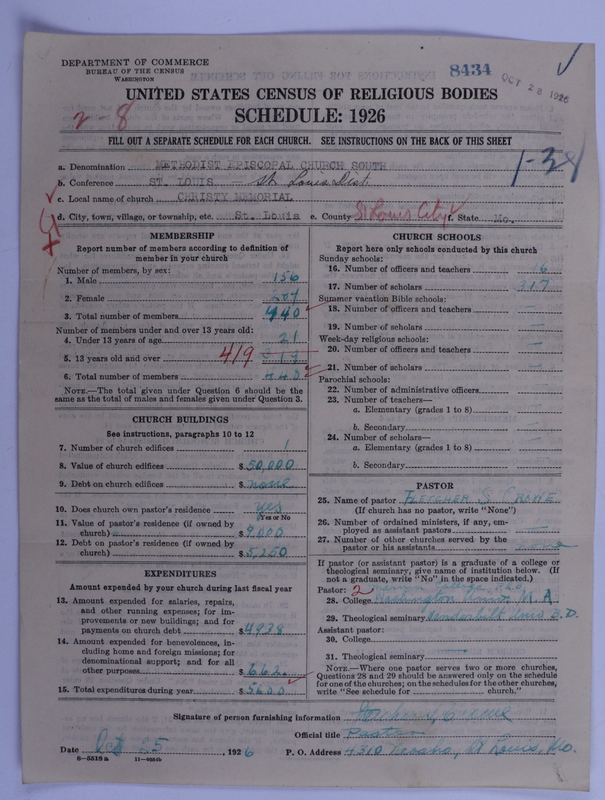 DEPARTMENT OF COMMERCE
BUREAU OF THE CENSUS
WASHINGTON
8434
OCT 28 1926
UNITED STATES CENSUS OF RELIGIOUS BODIES
SCHEDULE: 1926
2 8
FILL OUT A SEPARATE SCHEDULE FOR EACH CHURCH. SEE INSTRUCTIONS ON THE BACK OF THIS SHEET
1-38
a. Denomination METHODIST EPISCOPAL CHURCH SOUTH
b. Conference ST. LOUIS St Louis Dist.
c. Local name of church CHRISTY MEMORIAL
d. City, town, village, or township, etc. St. Louis e. County St Louis City f. State Mo.
MEMBERSHIP
Report number of members according to definition of member in your church
Number of members, by sex:
1. Male 156
2. Female
3. Total number of members 440
Number of members under and over 13 years old:
4. Under 13 years of age 21
5. 13 years old and over 419
6. Total number of members 440
NOTE.—The total given under Question 6 should be the same as the total of males and females given under Question 3.
CHURCH BUILDINGS
See instructions, paragraphs 10 to 12
7. Number of church edifices 1
8. Value of church edifices $50,000
9. Debt on church edifices $none
10. Does church own pastor's residence yes
(Yes or No
11. Value of pastor's residence (if owned by church) $9,000
12. Debt on pastor's residence (if owned by church) $5,250
EXPENDITURES
Amount expended by your church during last fiscal year
13. Amount expended for salaries, repairs, and other running expenses; for improvements or new buildings; and for payments on church debt $4938
14. Amount expended for benevolences, including home and foreign missions; for denominational support; and for all other purposes $662
15. Total expenditures during year $5600
CHURCH SCHOOLS
Report here only schools conducted by this church
Sunday schools:
16. Number of officers and teachers 16
17. Number of scholars 317
Summer vacation Bible schools:
18. Number of officers and teachers —
19. Number of scholars —
Week-day religious schools:
20. Number of officers and teachers —
21. Number of scholars —
Parochial schools:
22. Number of administrative officers —
23. Number of teachers—
a. Elementary (grades 1 to 8) —
b. Secondary —
24. Number of scholars—
a. Elementary (grades 1 to 8) —
b. Secondary —
PASTOR
25. Name of pastor FLETCHER S CROWE
(If church has no pastor, write "None")
26. Number of ordained ministers, if any, employed as assistant pastors —
27. Number of other churches served by the pastor or his assistants
If pastor (or assistant pastor) is a graduate of a college or theological seminary, give name of institution below. (If not a graduate, write "No" in the space indicated.)
Pastor: 2
28. College Washington M. A
29. Theological seminary Vanderbilt B. D.
Assistant pastor:
30. College
31. Theological seminary
NOTE.—Where one pastor serves two or more churches, Questions 28 and 29 should be answered only on the schedule for one of the churches; on the schedules for the other churches, write "See schedule for church."
Signature of person furnishing information
Official title Pastor
Date Oct 25, 1926 P. O. Address 4310 Neosho, St Louis, Mo.
8—5518a